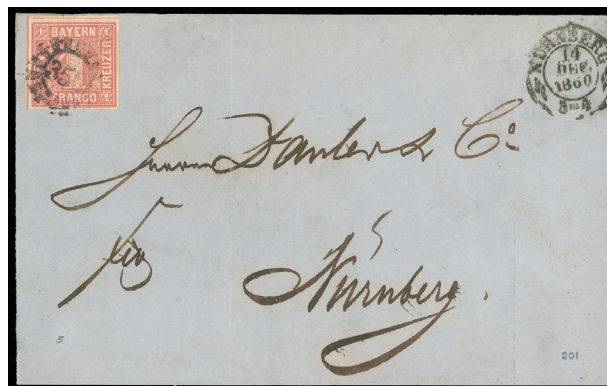 BAYERN
1 KREUZER 1
FRANCO
NÜRNBERG
14
DEC.
1860
3-4
Herren Dauler & Co
Nürnberg.
5
201